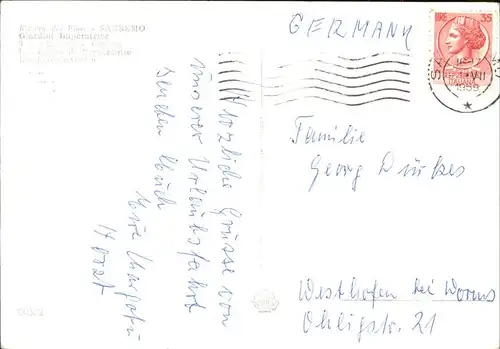 Riviera dei Fiori - SANREMO
Giardini Imperatrice
GERMANY
LIRE 35
1959
Herzliche Grüsse von
unserer Urlaubsfahrt
senden Euch
Eure Margatn
Horst
Familie
Georg Dürkes
Westhofen bei Worms
Ohligstr. 21